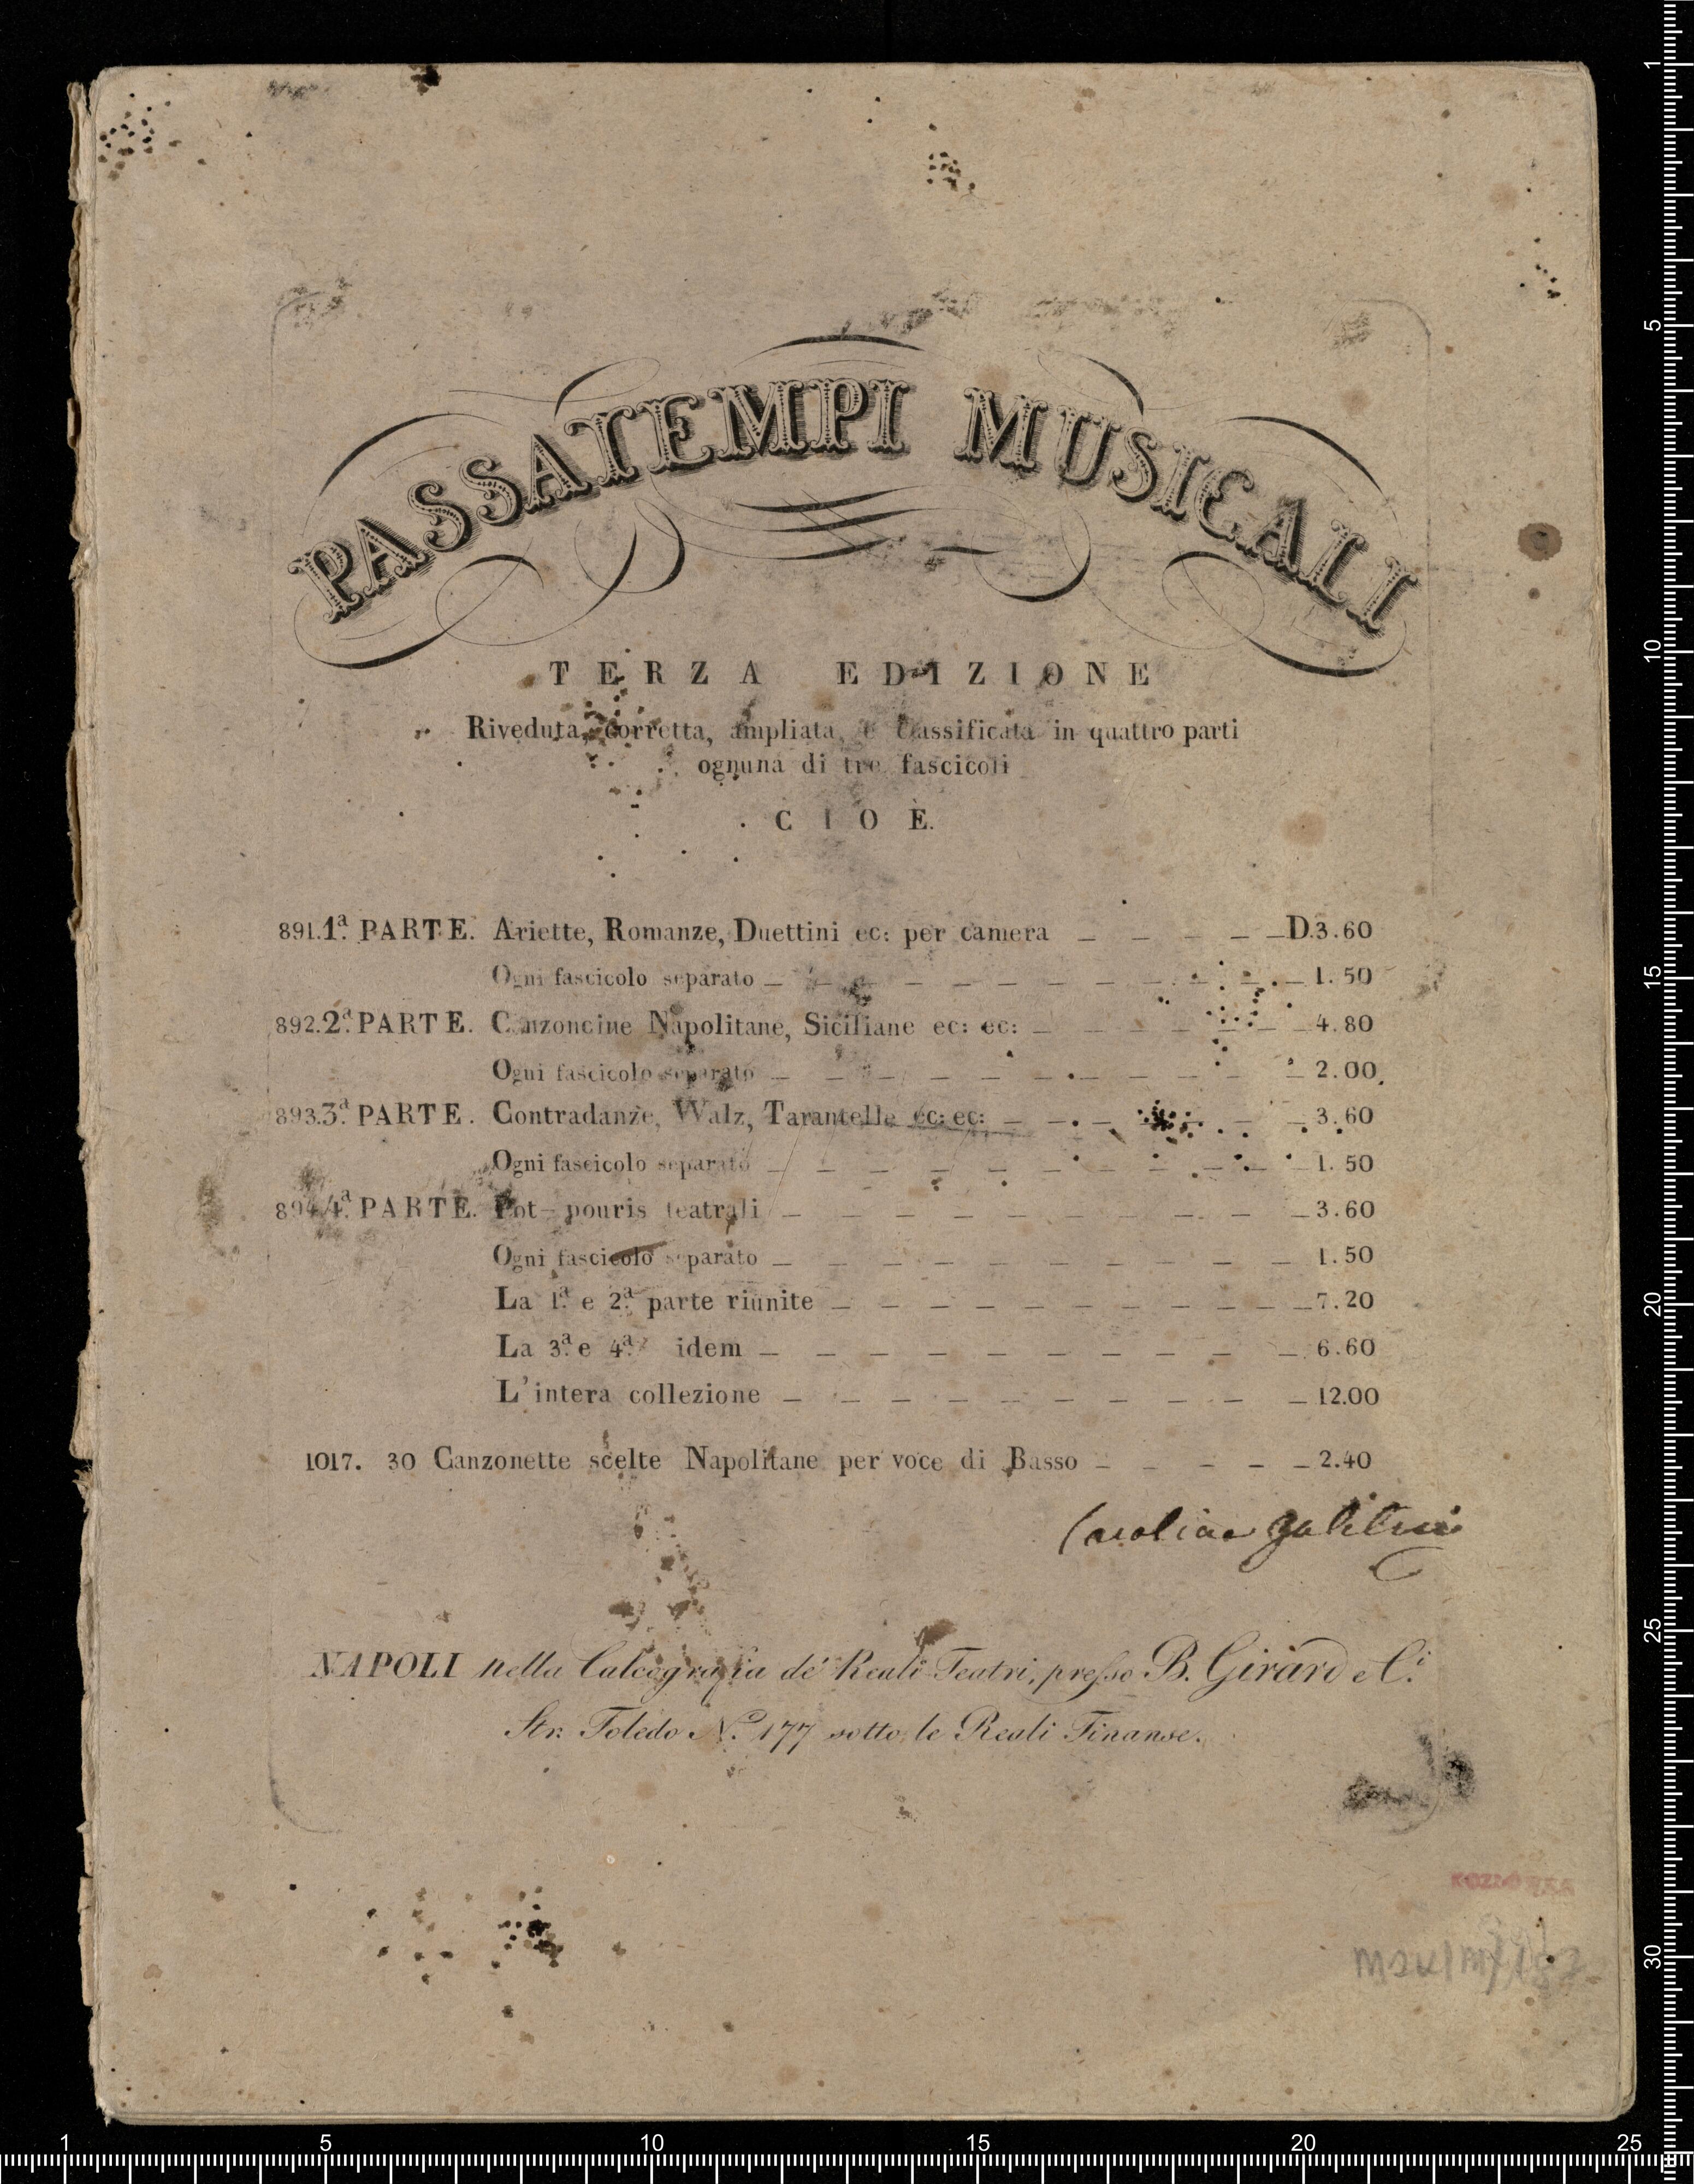 PASSATEMPI MUSICALI
TERZA EDIZIONE
Riveduta, corretta, ampliata, e classificata in quattro parti
ognuna di tre fascicoli
CIOÈ.
891. 1ª. PARTE. Ariette, Romanze, Duettini ec: per camera _ _ _ _ _ D.3.60
Ogni fascicolo separato _ _ _ _ _ _ _ _ _ _ 1.50
892. 2ª. PARTE. Canzoncine Napolitane, Siciliane ec: ec: _ _ _ _ _ 4.80
Ogni fascicolo separato _ _ _ _ _ _ _ _ _ _ 2.00.
893. 3ª. PARTE. Contradanze, Walz, Tarantelle ec: ec: _ _ _ _ _ _ 3.60
Ogni fascicolo separato _ _ _ _ _ _ _ _ _ _ 1.50
894. 4ª. PARTE. Pot-pouris teatrali _ _ _ _ _ _ _ _ _ _ 3.60
Ogni fascicolo separato _ _ _ _ _ _ _ _ _ _ 1.50
La 1ª. e 2ª. parte riunite _ _ _ _ _ _ _ _ _ 7.20
La 3ª. e 4ª. idem _ _ _ _ _ _ _ _ _ _ 6.60
L'intera collezione _ _ _ _ _ _ _ _ _ _ 12.00
1017. 30 Canzonette scelte Napolitane per voce di Basso _ _ _ _ _ 2.40
NAPOLI nella Calcografia de' Reali Teatri, presso B. Girard e C.i
Str. Toledo N.o 177 sotto le Reali Finanse.
1 5 10 15 20 25 30
1 5 10 15 20 25